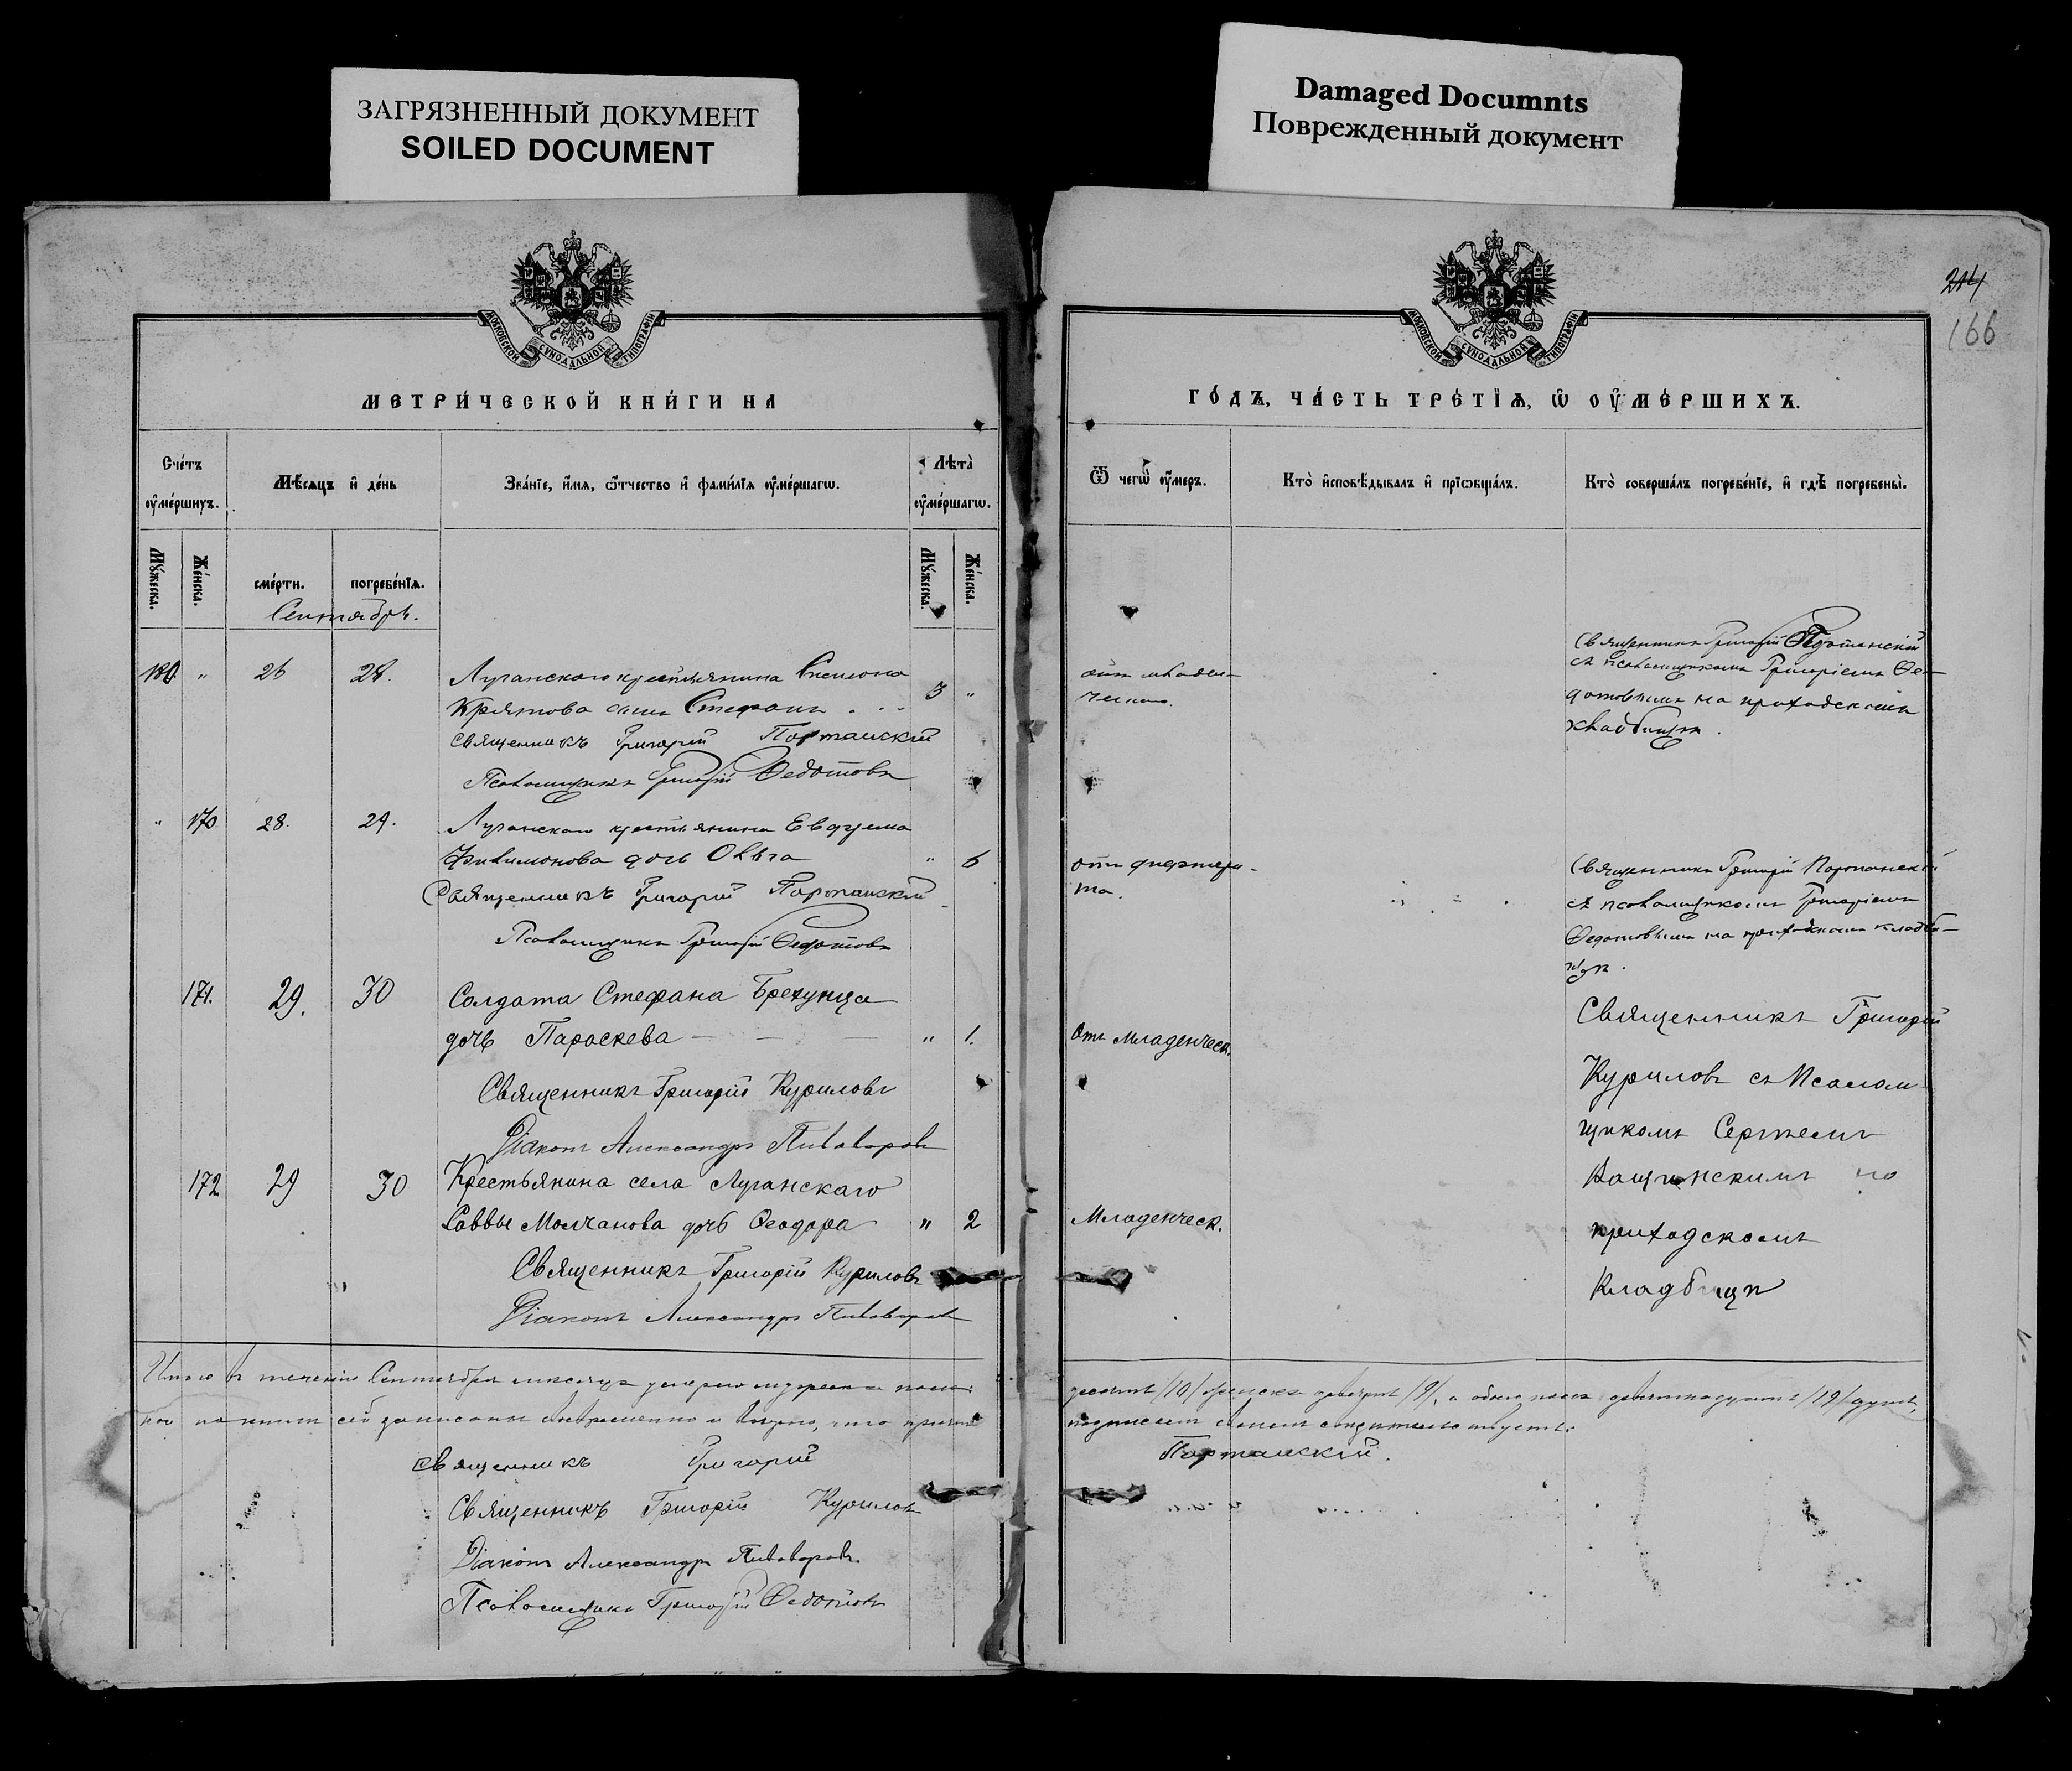 ЗАГРЯЗНЕННЫЙ ДОКУМЕНТ
SOILED DOCUMENT
Damaged Documnts
Поврежденный документ
МОСКОВСКОЙ СѴНОДАЛЬНОЙ ТИПОГРАФІИ
МОСКОВСКОЙ СѴНОДАЛЬНОЙ ТИПОГРАФІИ
214
166
МЕТРИ́ЧЕСКОЙ КНИ́ГИ НА
ГО́ДЪ, ЧА́СТЬ ТРЕ́ТІѦ, Ѡ ОУМЕ́РШИХЪ.
Сче́тъ оуме́ршихъ.
Мѣ́сяцъ и де́нь
Зва́нїе, и́мя, ѻ́тчество и фами́лїя оуме́ршагѡ.
Лѣта̀ оуме́ршагѡ.
Ѿ чегѡ̀ оу́меръ.
Кто̀ исповѣ́дывалъ и прїѡбща́лъ.
Кто̀ соверша́лъ погребе́нїе, и гдѣ̀ погребены̀.
Му́жеска.
Же́нска.
сме́рти.
погребе́нїя.
Му́жеска.
Же́нска.
Сентябрь.
" 26 28. Луганскаго крестьянина
сынъ Стефанъ 3 "
Священникъ Григорій Портанскій
Псаломщикъ Григорій Ѳедотовъ
отъ младен-
ческаго.
Священникъ Григорій Портанскій
съ псаломщикомъ Григоріемъ Ѳе-
дотовымъ на приходскомъ
кладбищѣ.
" 170 28. 29. Луганскаго крестьянина Евдокима
Филимонова дочь Ольга " 6
Священникъ Григорій Портанскій
Псаломщикъ Григорій Ѳедотовъ
отъ дифтери-
та.
Священникъ Григорій Портанскій
съ псаломщикомъ Григоріемъ
Ѳедотовымъ на приходскомъ кладби-
щѣ.
171. 29. 30 Солдата Стефана Брехунца
дочь Параскева — — — " 1.
Священникъ Григорій Куриловъ
Діаконъ Александръ Пивоваровъ
Отъ Младенческ.
Священникъ Григорій
Куриловъ съ Псалом
щикомъ Сергеемъ
на
приходскомъ
Кладбищѣ
172 29 30 Крестьянина села Луганскаго
Саввы Молчанова дочь Ѳеодора " 2
Священникъ Григорій Куриловъ
Діаконъ Александръ Пивоваровъ
Младенческ.
Итого въ теченіи Сентября месяца умерло мужеска пола
десять /10/ женска девять /9/, а обоего пола девятнадцать /19/ душъ,
по книгѣ сей записаны своевременно и верно, что
подписомъ своимъ свидетельствуетъ:
Священникъ Григорій Портанскій.
Священникъ Григорій Куриловъ
Діаконъ Александръ Пивоваровъ.
Псаломщикъ Григорій Ѳедотовъ